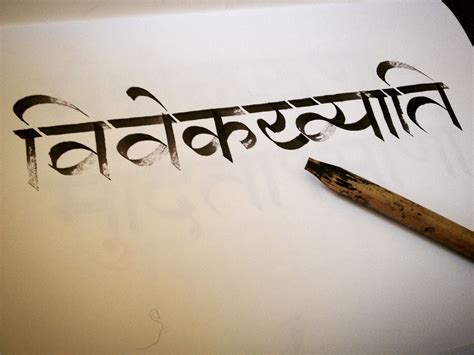 विवेकख्याति